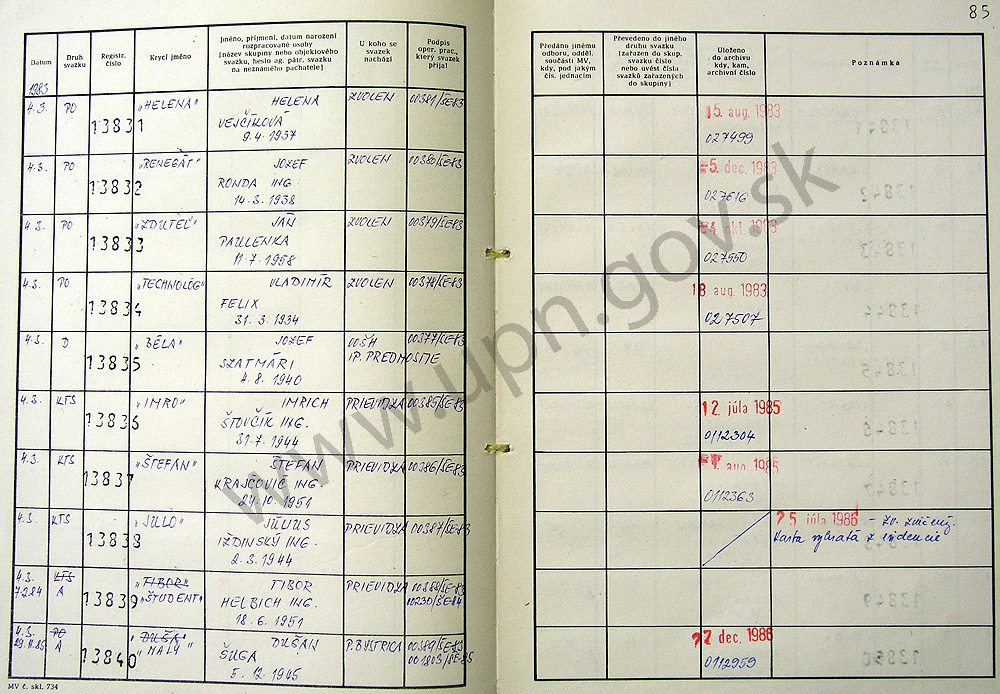 85
Datum
Druh svazku
Registr. číslo
Krycí jméno
Jméno, příjmení, datum narození
rozpracované osoby
(název skupiny nebo objektového
svazku, heslo ag. pátr. svazku
na neznámého pachatele)
U koho se
svazek
nachází
Podpis
oper. prac.,
který svazek
přijal
Předáno jinému
odboru, odděl.
součásti MV,
kdy, pod jakým
čís. jednacím
Převedeno do jiného
druhu svazku
(zařazen do skup.
svazku číslo
nebo uvést čísla
svazků zařazených
do skupiny)
Uloženo
do archivu
kdy, kam,
archivní číslo
Poznámka
1983
4.3. PO 13831 „HELENA" HELENA ZVOLEN 00381/ŠE-83
VEJČÍKOVÁ
9.4.1937
15. aug. 1983
027499
4.3. PO 13832 „RENEGÁT" JOZEF ZVOLEN 00380/ŠE-83
RONDA ING.
14.3.1938
-5. dec. 1983
027616
4.3. PO 13833 JÁN ZVOLEN 00379/ŠE-83
PAULENKA
11.7.1958
okt. 1983
027550
4.3. PO 13834 „TECHNOLÓG" VLADIMÍR ZVOLEN 00378/ŠE-83
FELIX
31.3.1934
18. aug. 1983
027507
4.3. D 13835 „BĚLA" JOZEF OOŠH 00377/ŠE-83
SZATMÁRI IP. PREDMOSTIE
4.8.1940
4.3. KTS 13836 „IMRO" IMRICH PRIEVIDZA 00385/ŠE-83
ŠŤOVČÍK ING.
31.7.1944
12. júla 1985
0112304
4.3. KTS 13837 „ŠTEFAN" ŠTEFAN PRIEVIDZA 00386/ŠE-83
KRAJČOVIČ ING.
24.10.1951
aug. 1985
0112363
4.3. KTS 13838 „JULO" JÚLIUS PRIEVIDZA 00387/ŠE-83
IŽDINSKÝ ING.
2.3.1944
25. júla 1986 - zv. zničený.
Karta vybratá z evidencie
4.3. KTS 13839 „TIBOR" TIBOR PRIEVIDZA 00388/ŠE-83
7.2.84 A „ŠTUDENT" HELBICH ING. 00230/ŠE-84
18.6.1951
4.3. PO 13840 „DUŠA" DUŠAN P. BYSTRICA 00389/ŠE-83
29.11.85 A „MALÝ" ŠUGA 001805/ŠE-85
5.12.1905
27 dec. 1986
0112959
MV č. skl. 734
www.upn.gov.sk